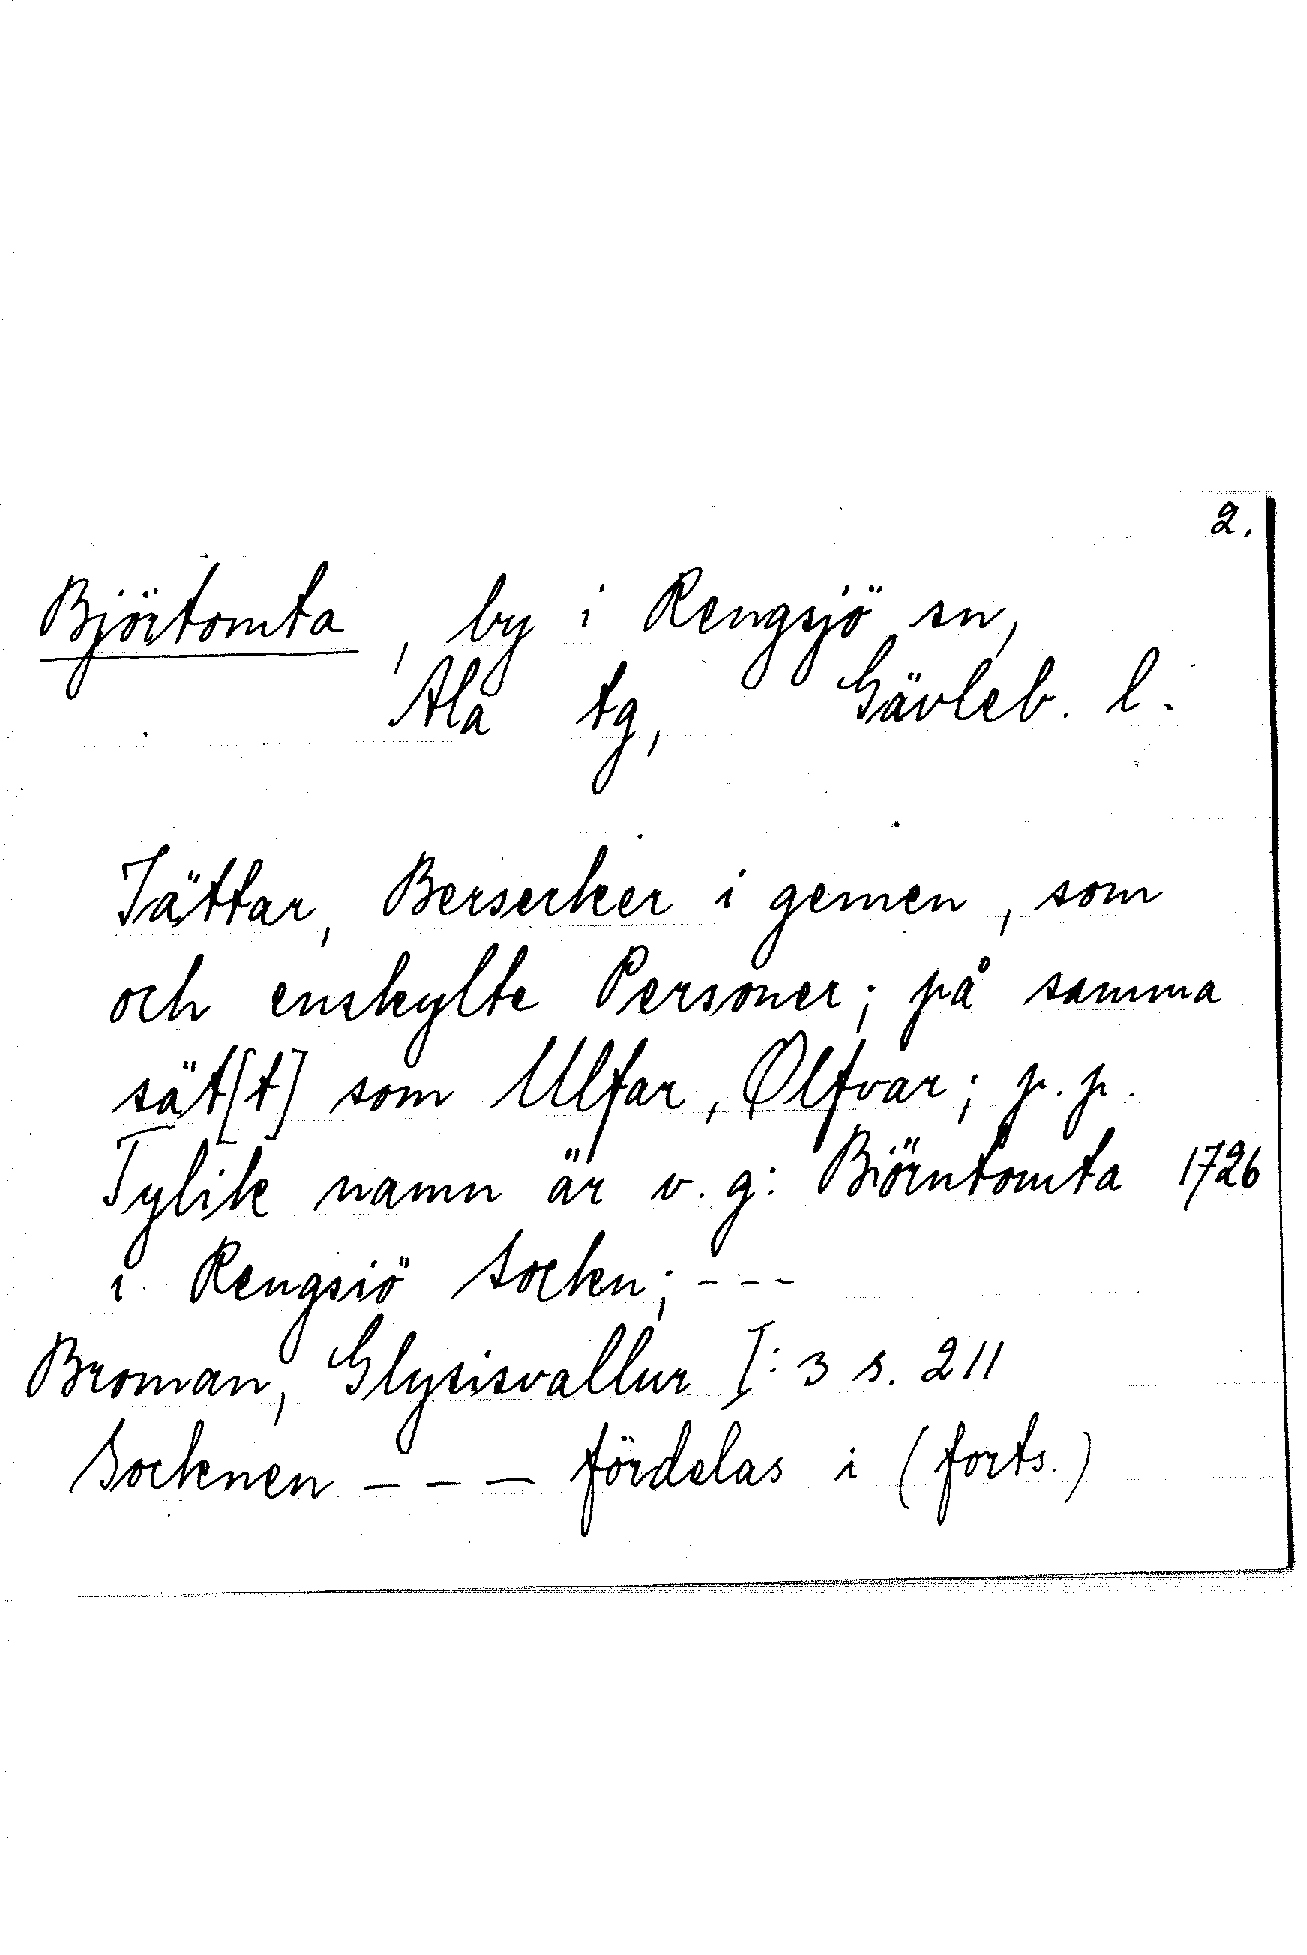 2.
Björtomta, by i Rengsjö sn,
Ala tg, Gävleb. l.
Jättar, Berserker i gemen, som
och enskylte Personer; på samma
sät[t] som Ulfar, Ølfvar; p.p.
Tylik namn är v.g: Biörntomta 1726
i Rengsiö Sockn; ---
Broman, Glysisvallur I:3 s. 211
Socknen - - - fördelas i (forts.)